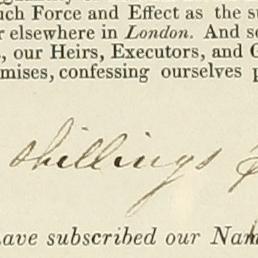 uch Force and Effect as the su
r elsewhere in London. And s
, our Heirs, Executors, and
mises, confessing ourselves p
shillings
ave subscribed our Nam